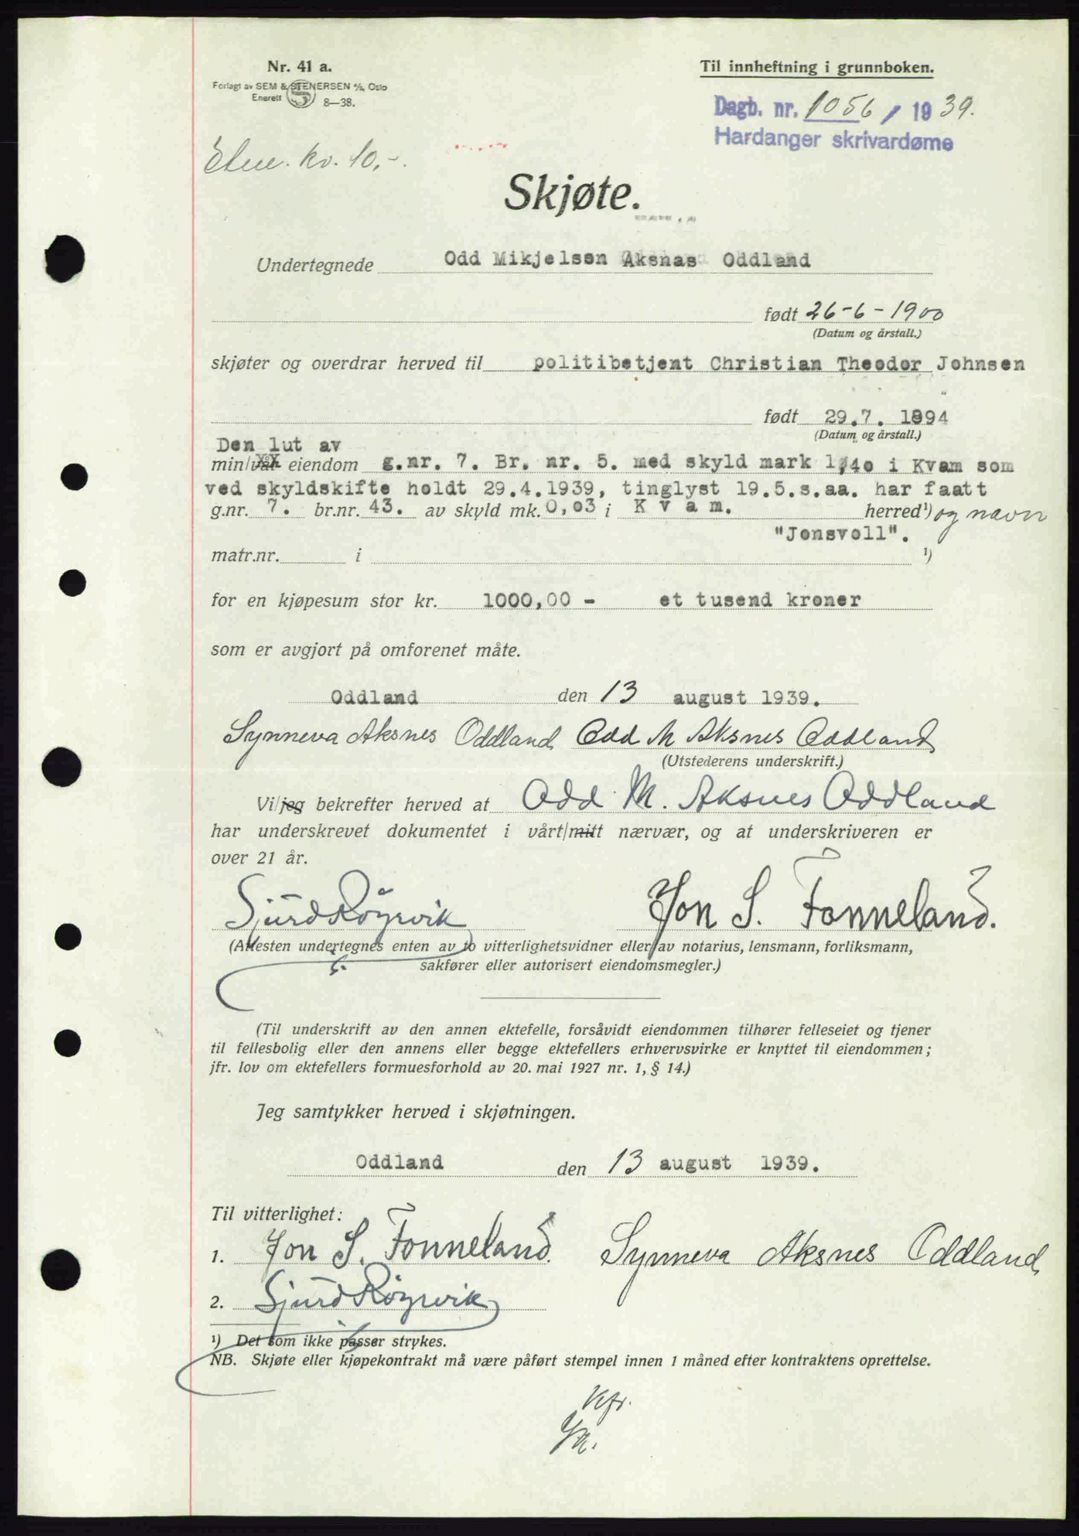 Nr. 41 a.
Forlagt av SEM & STENERSEN A/S, Oslo
Enerett 8—38.
Til innheftning i grunnboken.
Dagb. nr. 1056 / 1939.
Hardanger skrivardøme
kv. 10,-.
Skjøte.
Undertegnede Odd Mikjelsen Aksnas Oddland
født 26-6-1900
(Datum og årstall.)
skjøter og overdrar herved til politibetjent Christian Theodor Johnsen
født 29.7. 1894
(Datum og årstall.)
Den lut av
min/vår eiendom g.nr. 7. Br. nr. 5. med skyld mark 1,40 i Kvam som
ved skyldskifte holdt 29.4.1939, tinglyst 19.5.s.aa. har faatt
g.nr. 7. br.nr. 43. av skyld mk. 0,03 i K v a m. herred¹) og navn
"Jonsvoll".
matr.nr. i ¹)
for en kjøpesum stor kr. 1000,00 - et tusend kroner
som er avgjort på omforenet måte.
Oddland den 13 august 1939.
Synneva Aksnes Oddland Odd M Aksnes Oddland
(Utstederens underskrift.)
Vi/jeg bekrefter herved at Odd M. Aksnes Oddland
har underskrevet dokumentet i vårt/mitt nærvær, og at underskriveren er
over 21 år.
Sjurd Røyrvik Jon S. Fonneland.
(Attesten undertegnes enten av to vitterlighetsvidner eller av notarius, lensmann, forliksmann,
sakfører eller autorisert eiendomsmegler.)
(Til underskrift av den annen ektefelle, forsåvidt eiendommen tilhører felleseiet og tjener
til fellesbolig eller den annens eller begge ektefellers erhvervsvirke er knyttet til eiendommen;
jfr. lov om ektefellers formuesforhold av 20. mai 1927 nr. 1, § 14.)
Jeg samtykker herved i skjøtningen.
Oddland den 13 august 1939.
Til vitterlighet:
1. Jon S. Fonneland. Synneva Aksnes Oddland
2. Sjurd Røyrvik
¹) Det som ikke passer strykes.
NB. Skjøte eller kjøpekontrakt må være påført stempel innen 1 måned efter kontraktens oprettelse.
Kfr.